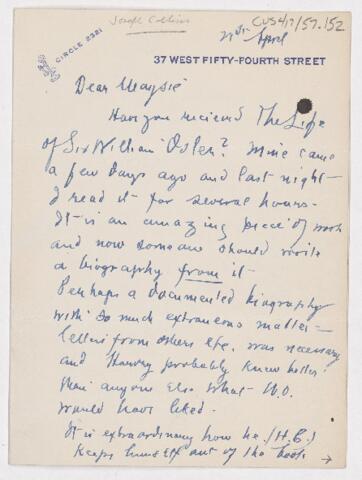 Joseph Collins
CUS4/17/59.152
CIRCLE 2321
21st April
37 WEST FIFTY-FOURTH STREET
Dear Maysie
Have you recieved The Life
of Sir William Osler? Mine came
a few days ago and last night
I read it for several hours.
It is an amazing piece of work
and now someone should write
a biography from it
Perhaps a documented biography
with so much extraneous matter
letters from others etc. was necessary
and Harvey probably knew better
than anyone else what W.O.
would have liked.
It is extraordinary how he (H.C.)
keeps himself out of the book
→